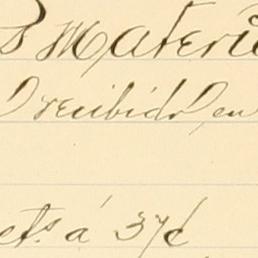 Materi
recibido en
cts. á 37¢